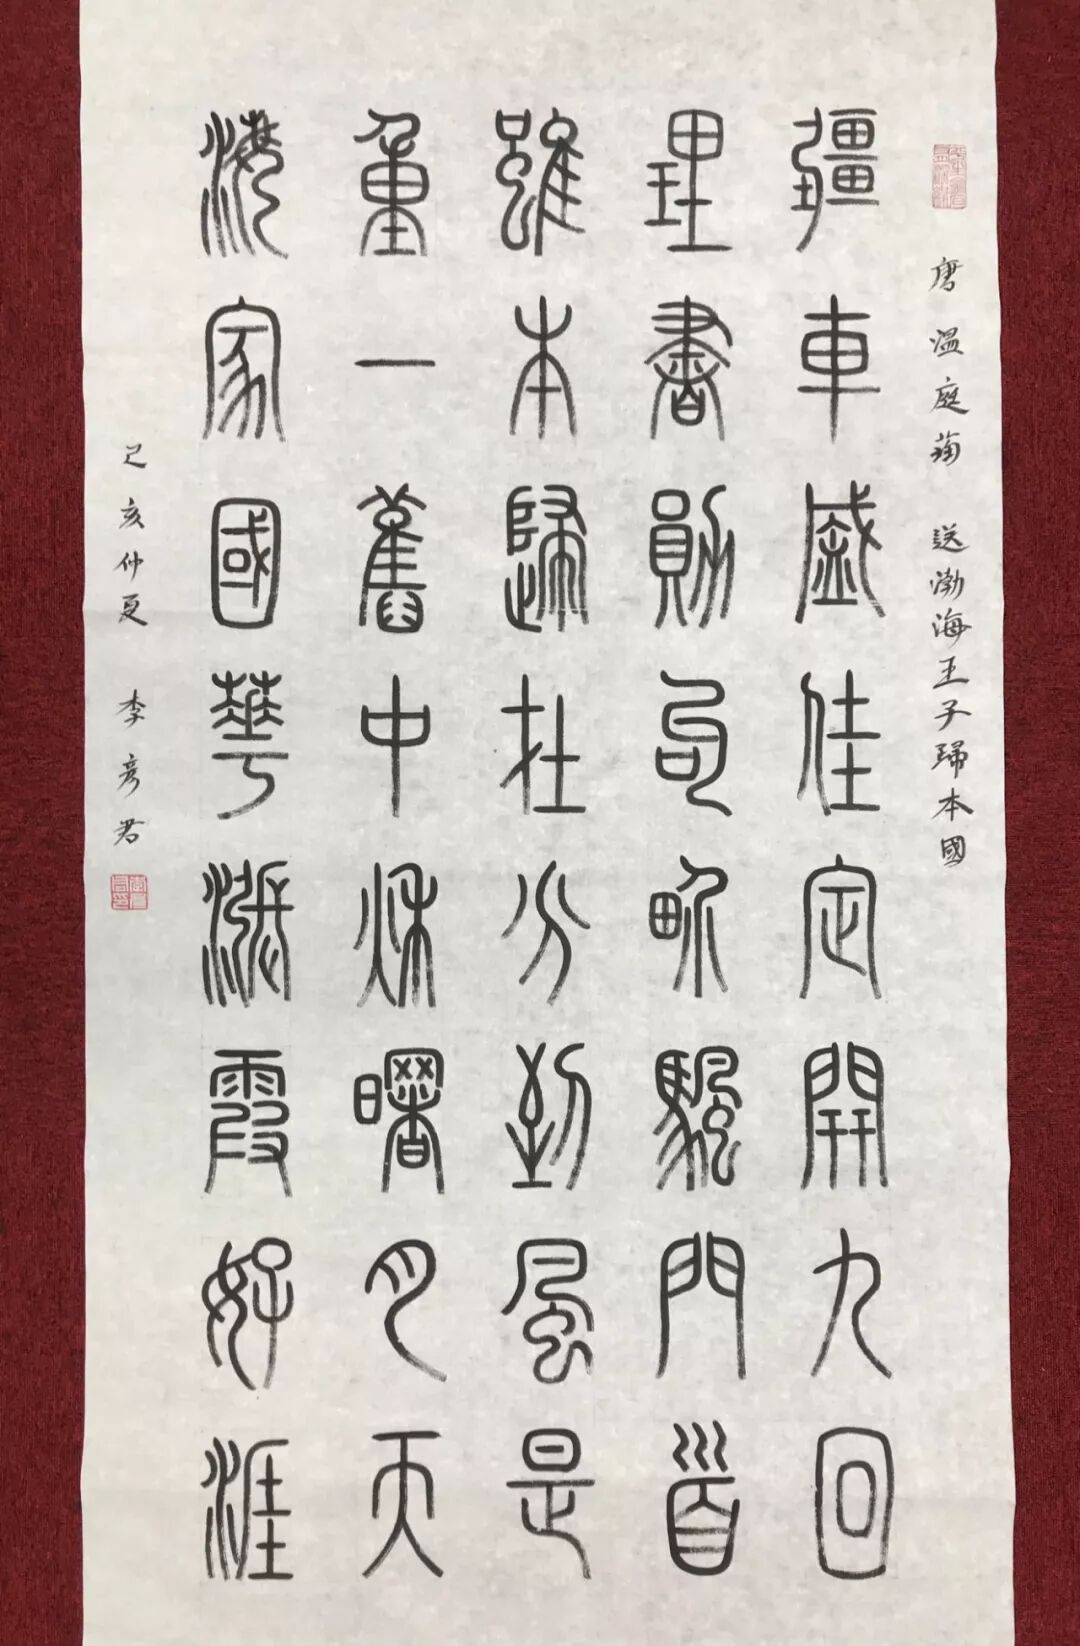 唐溫庭筠 送渤海王子歸本國
疆理雖重海
車書本一家
盛勛歸舊國
佳句在中華
定畍分秋漲
開颿到曙霞
九門風月好
回首是天涯
己亥仲夏 李彦君